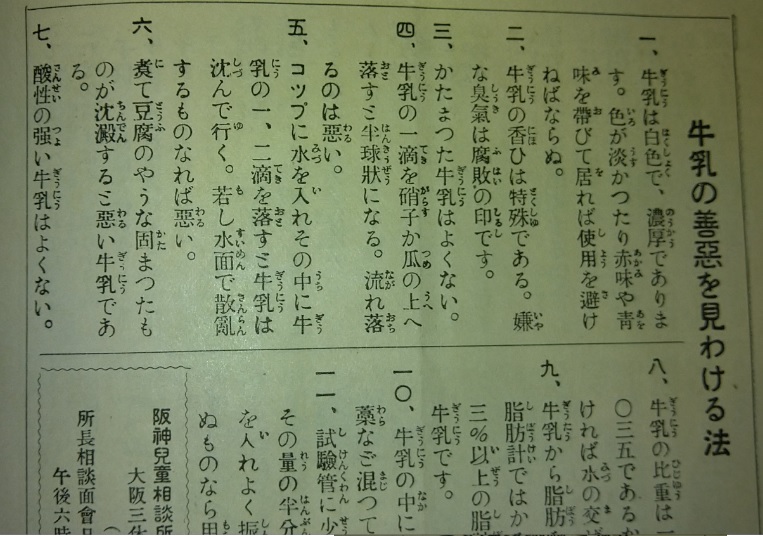 牛乳の善惡を見わける法
一、牛乳は白色で、濃厚でありま
す。色が淡かつたり赤味や靑
味を帶びて居れば使用を避け
ねばならぬ。
二、牛乳の香ひは特殊である。嫌
な臭氣は腐敗の印です。
三、かたまつた牛乳はよくない。
四、牛乳の一滴を硝子か瓜の上へ
落すと半球狀になる。流れ落
るのは惡い。
五、コツプに水を入れその中に牛
乳の一、二滴を落すと牛乳は
沈んで行く。若し水面で散亂
するものなれば惡い。
六、煑て豆腐のやうな固まつたも
のが沈澱すると惡い牛乳であ
る。
七、酸性の强い牛乳はよくない。
八、牛乳の比重は一
〇三五であるか
ければ水の交ぜ
九、牛乳から脂肪を
脂肪計ではか
三%以上の脂
牛乳です。
一〇、牛乳の中に
藁なご混つて
一一、試驗管に少
その量の半分
を入れよく振
ぬものなら
阪神兒童相談所
大阪三
所長相談面會日
午後六時